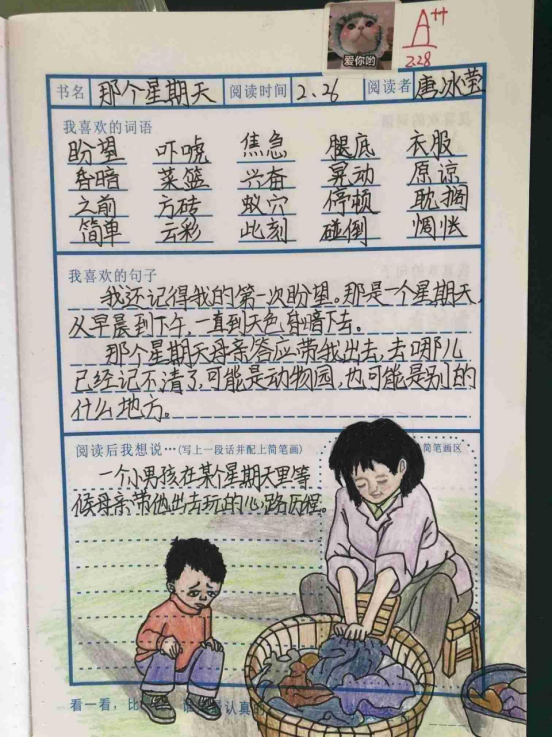 爱你哟
A++
2.28
书名 那个星期天 阅读时间 2、26 阅读者 唐冰莹
我喜欢的词语
盼望 吓唬 焦急 腿底 衣服
昏暗 菜篮 兴奋 晃动 原谅
之前 方砖 蚁穴 停顿 耽搁
简单 云彩 此刻 碰倒 惆怅
我喜欢的句子
我还记得我的第一次盼望。那是一个星期天,
从早晨到下午,一直到天色昏暗下去。
那个星期天母亲答应带我出去,去哪儿
已经记不清了,可能是动物园,也可能是别的
什么地方。
阅读后我想说…(写上一段话并配上简笔画) 简笔画区
一个小男孩在某个星期天里等
候母亲带他出去玩的心路历程。
看一看,比 谁 认真的